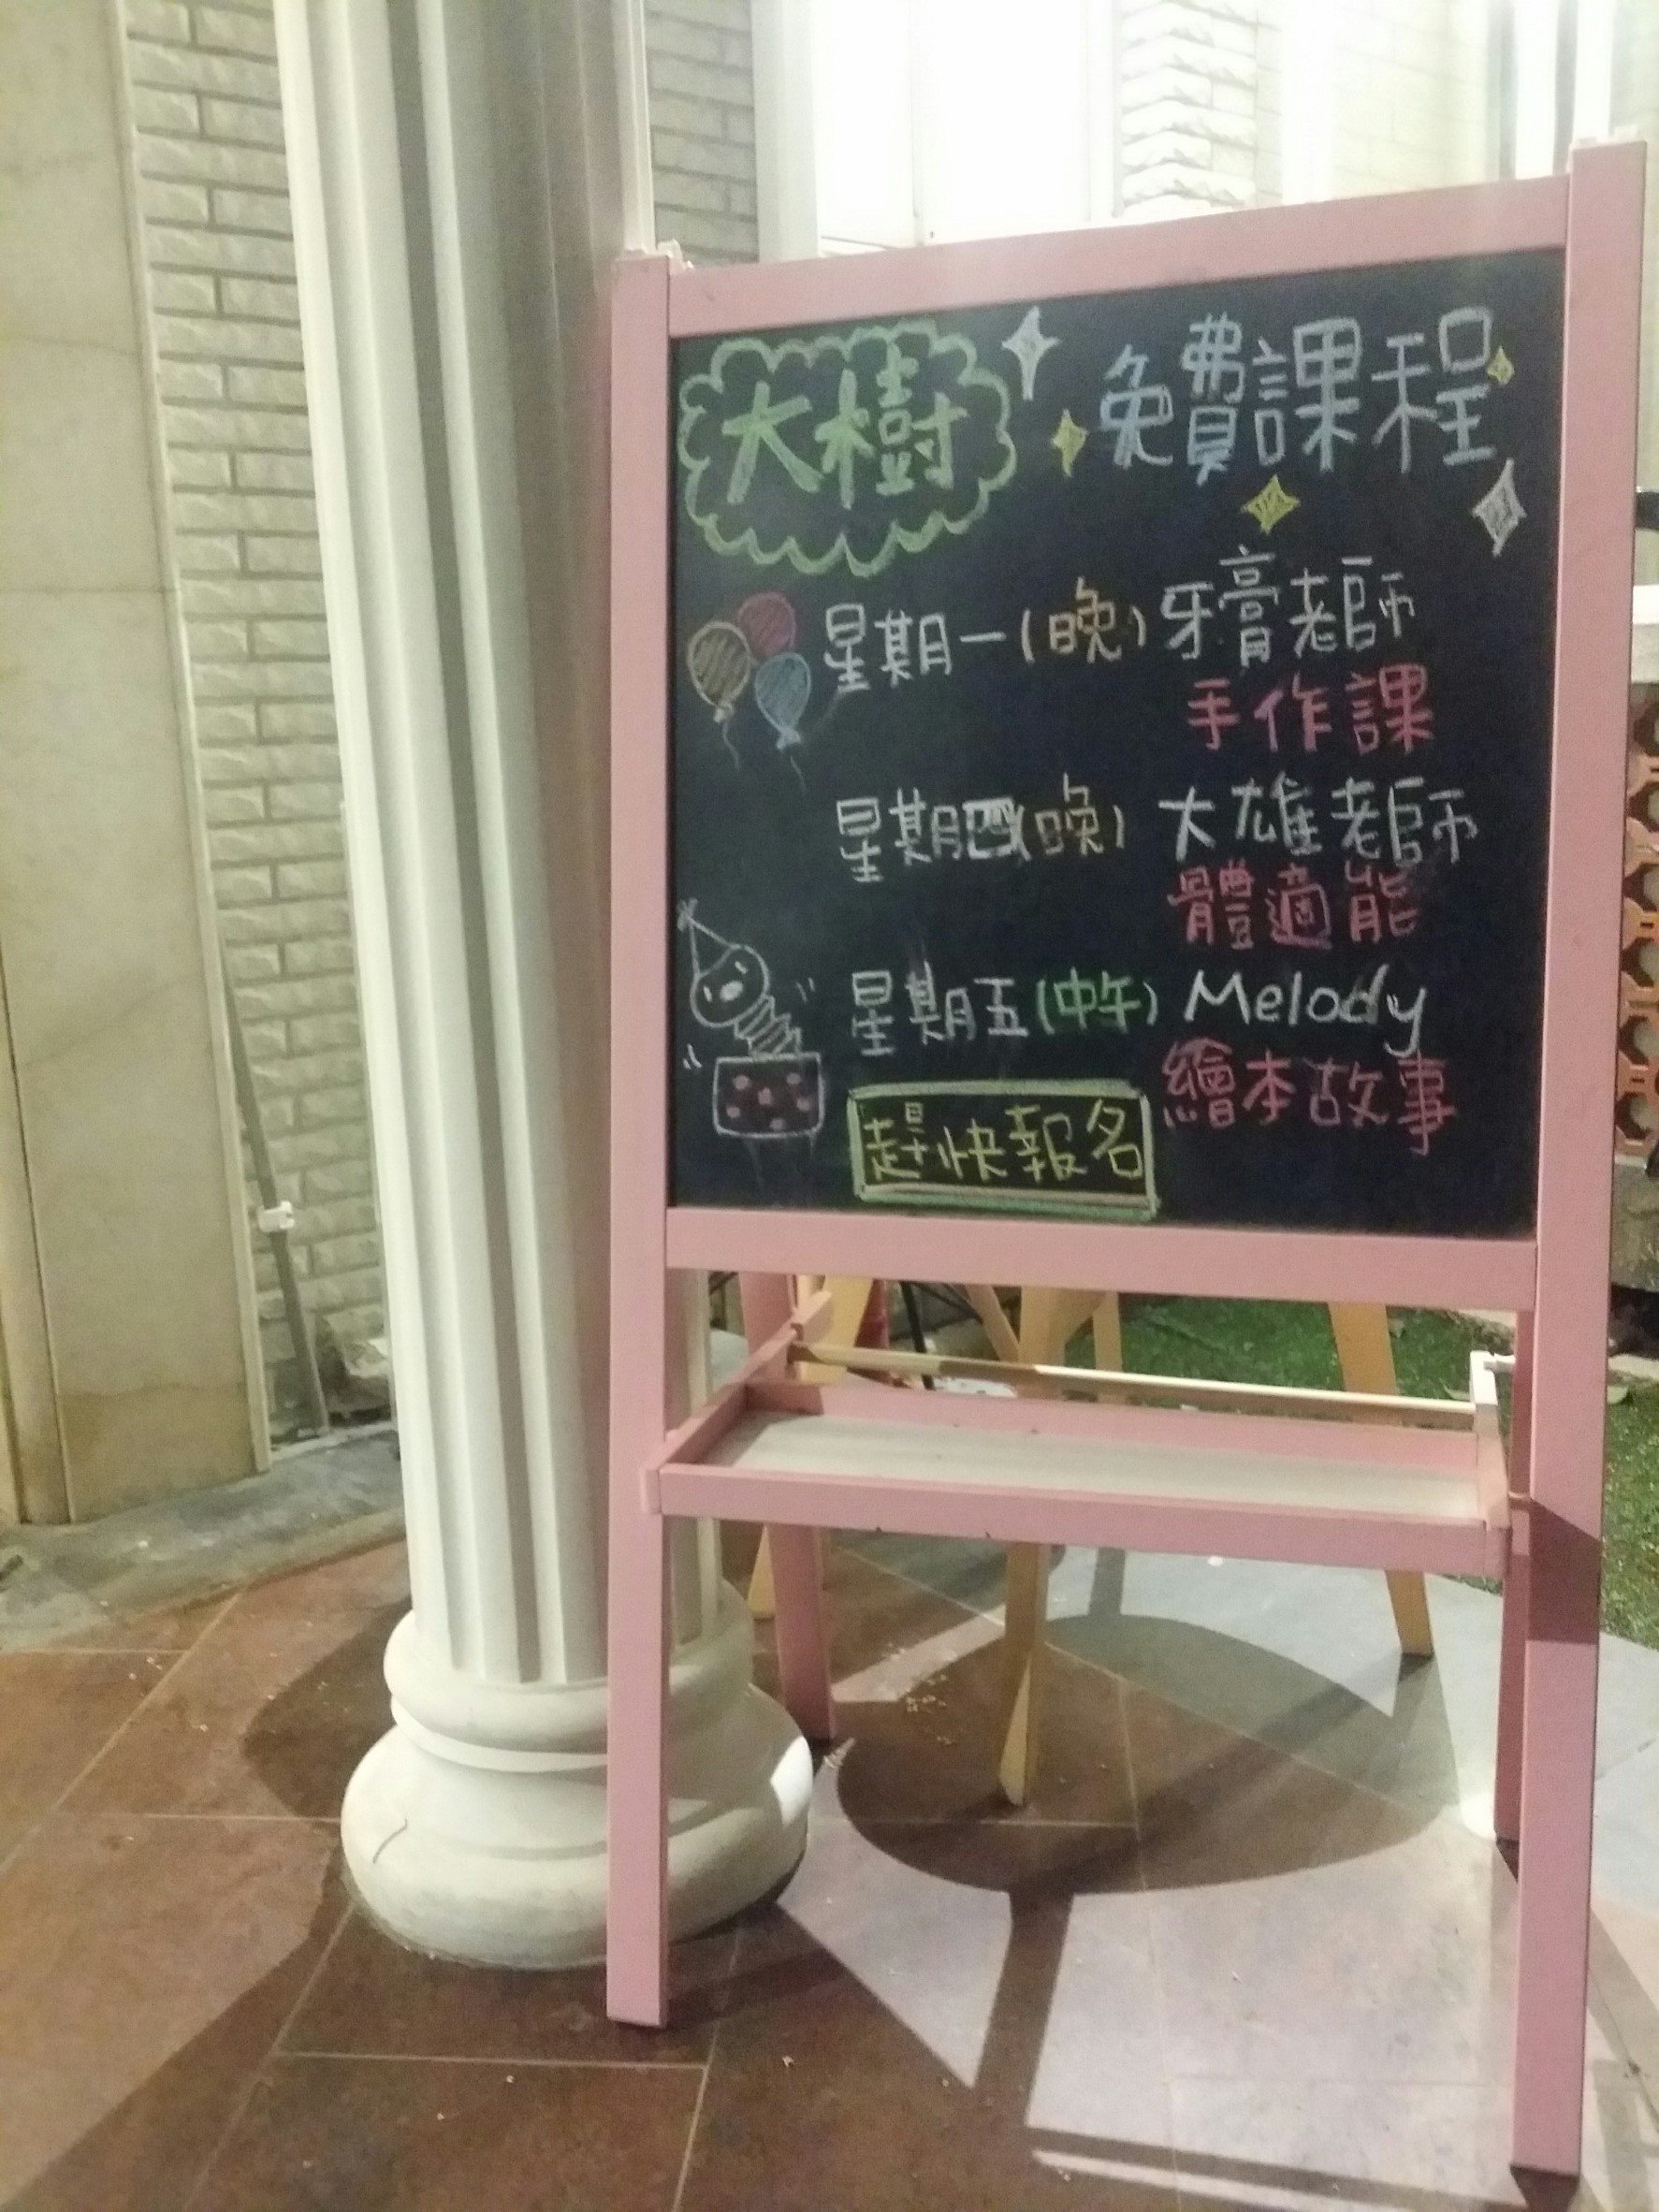 大樹 免費課程
星期一(晚) 牙膏老師
手作課
星期四(晚) 大雄老師
體適能
星期五(中午) Melody
繪本故事
趕快報名